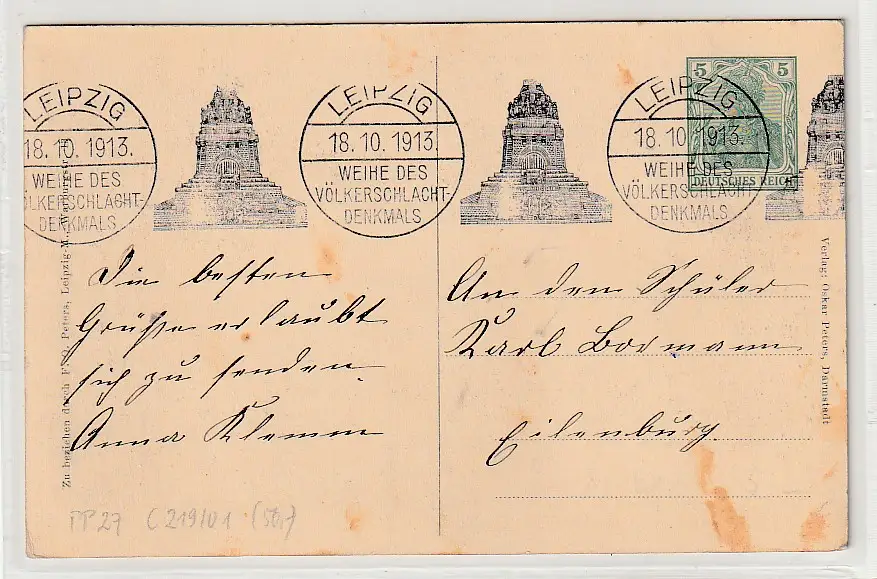 LEIPZIG
18.10.1913.
WEIHE DES
VÖLKERSCHLACHT-
DENKMALS
LEIPZIG
18.10.1913.
WEIHE DES
VÖLKERSCHLACHT-
DENKMALS
LEIPZIG
18.10.1913.
WEIHE DES
VÖLKERSCHLACHT-
DENKMALS
5 5
DEUTSCHES REICH
Die besten
Grüße erlaubt
sich zu senden
Anna Klemm
An den Schüler
Karl Bormann
Eilenburg.
Zu beziehen durch Peters, Leipzig-
Verlag: Oskar Peters, Darmstadt
PP27 C219/01